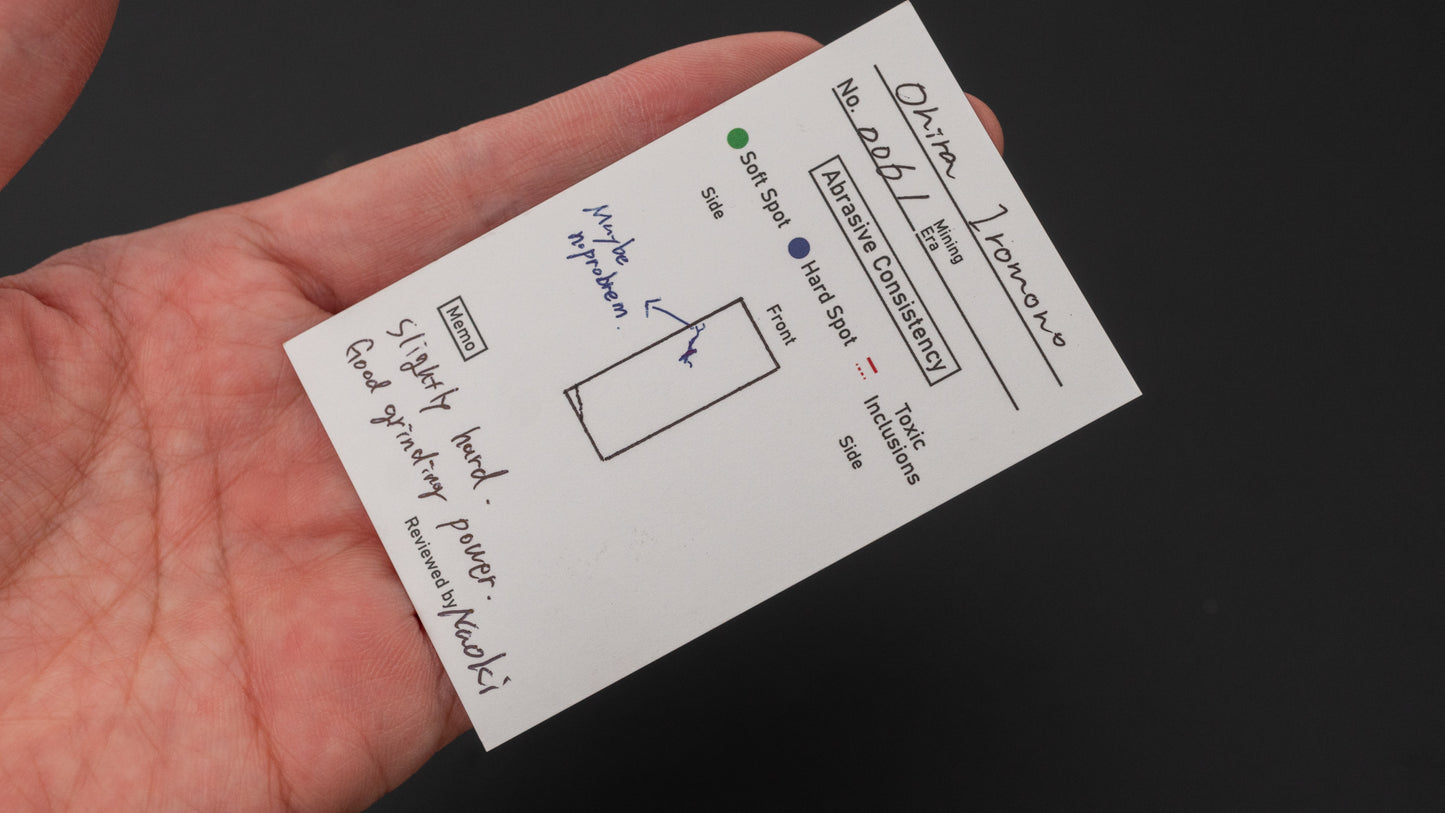 Ohira Iromono
No. 0061 Mining Era
Abrasive Consistency
Soft Spot Hard Spot Toxic Inclusions
Side Front Side
Maybe
no probrem.
Memo
Slightly hard.
Good grinding power.
Reviewed by Naoki